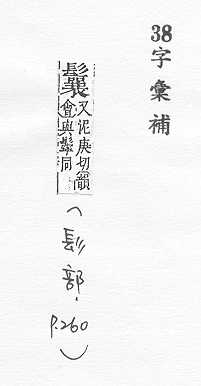 38字彙補
鬤又泥庚切韻
會與鬡同
(髟部, p.260)